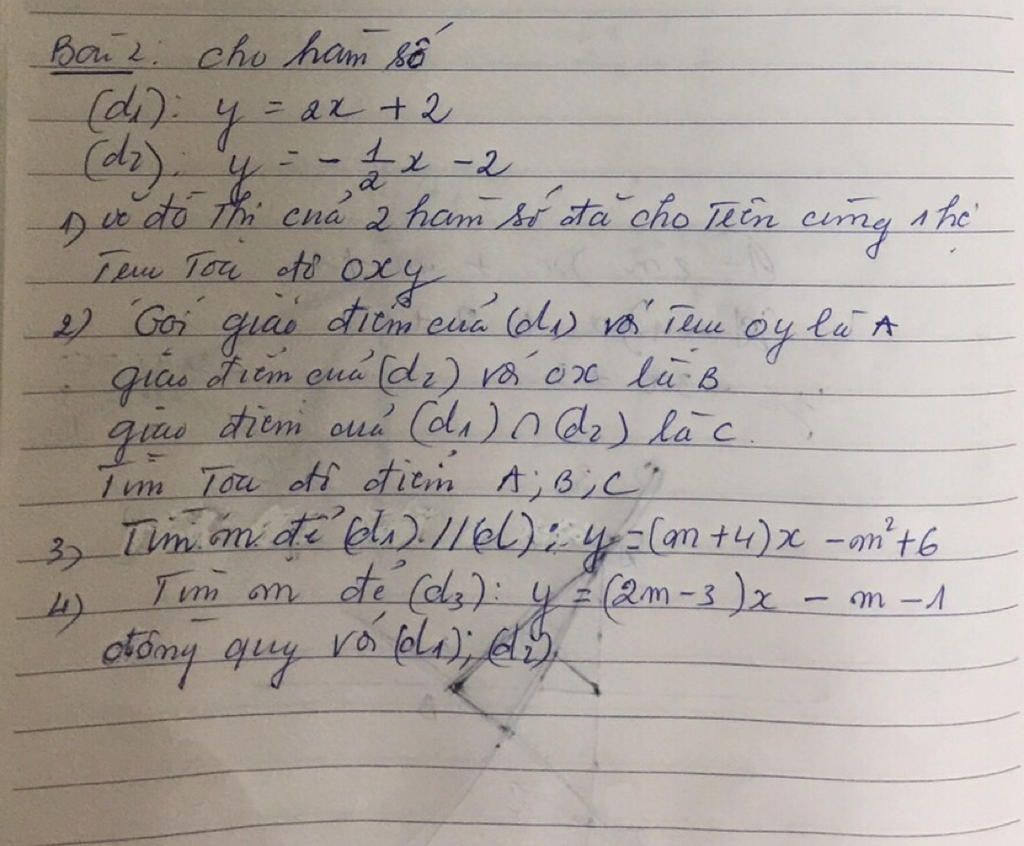 Bài 2: cho hàm số
(d1): y = 2x + 2
(d2): y = - 1/2 x - 2
1) vẽ đồ thị của 2 hàm số đã cho trên cùng 1 hệ
trục toạ độ oxy
2) Gọi giao điểm của (d1) với trục oy là A
giao điểm của (d2) với ox là B
giao điểm của (d1) ∩ (d2) là C.
Tìm toạ độ điểm A; B; C
3) Tìm m để (d1) // (d): y = (m+4)x - m²+6
4) Tìm m để (d3): y = (2m-3)x - m - 1
đồng quy với (d1); (d2).